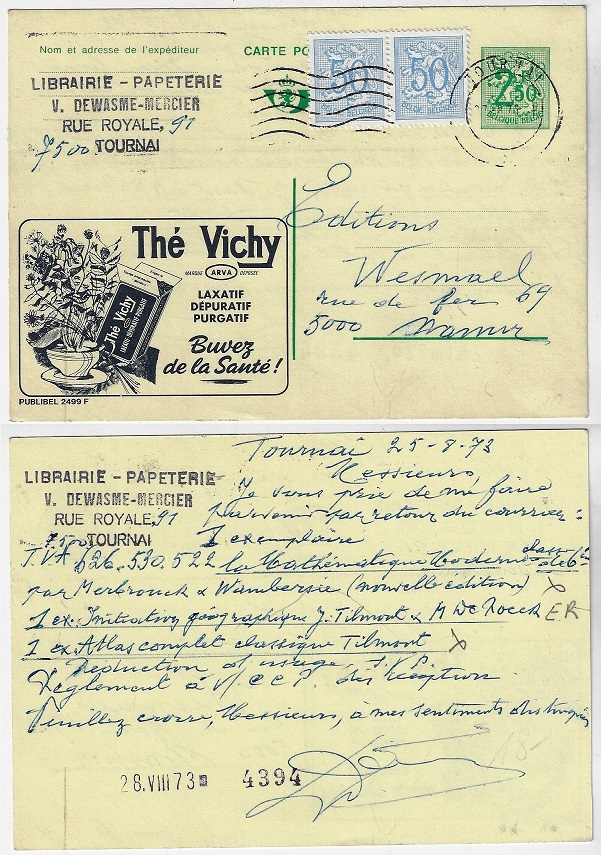 Nom et adresse de l'expéditeur
CARTE PO
50
50
TOURNAI
2 50
BELGIQUE-BELGIE
LIBRAIRIE - PAPETERIE
V. DEWASME-MERCIER
RUE ROYALE, 91
7500 TOURNAI
Thé Vichy
MARQUE ARVA DÉPOSÉE
LAXATIF
DÉPURATIF
PURGATIF
Buvez
de la Santé !
Thé Vichy
PUBLIBEL 2499 F
Editions
Wesmael
rue de fer 69
5000 Namur
Tournai 25-8-73
LIBRAIRIE - PAPETERIE
V. DEWASME-MERCIER
RUE ROYALE, 91
7500 TOURNAI
Messieurs,
Je vous prie de me faire
parvenir par retour du courrier :
1 exemplaire
T.V.A 626.530.522 la Mathématique Moderne classe de 6e
par Merbrouck & Wambersie (nouvelle édition) x
1 ex. Initiation géographique J. Tilmont & M De Roeck ER
1 ex Atlas complet classique Tilmont x
Réduction d'usage, S.V.P.
Règlement à V/ C C P. dès réception
Veuillez croire, Messieurs, à mes sentiments distingués
18-
28.VIII73 4394